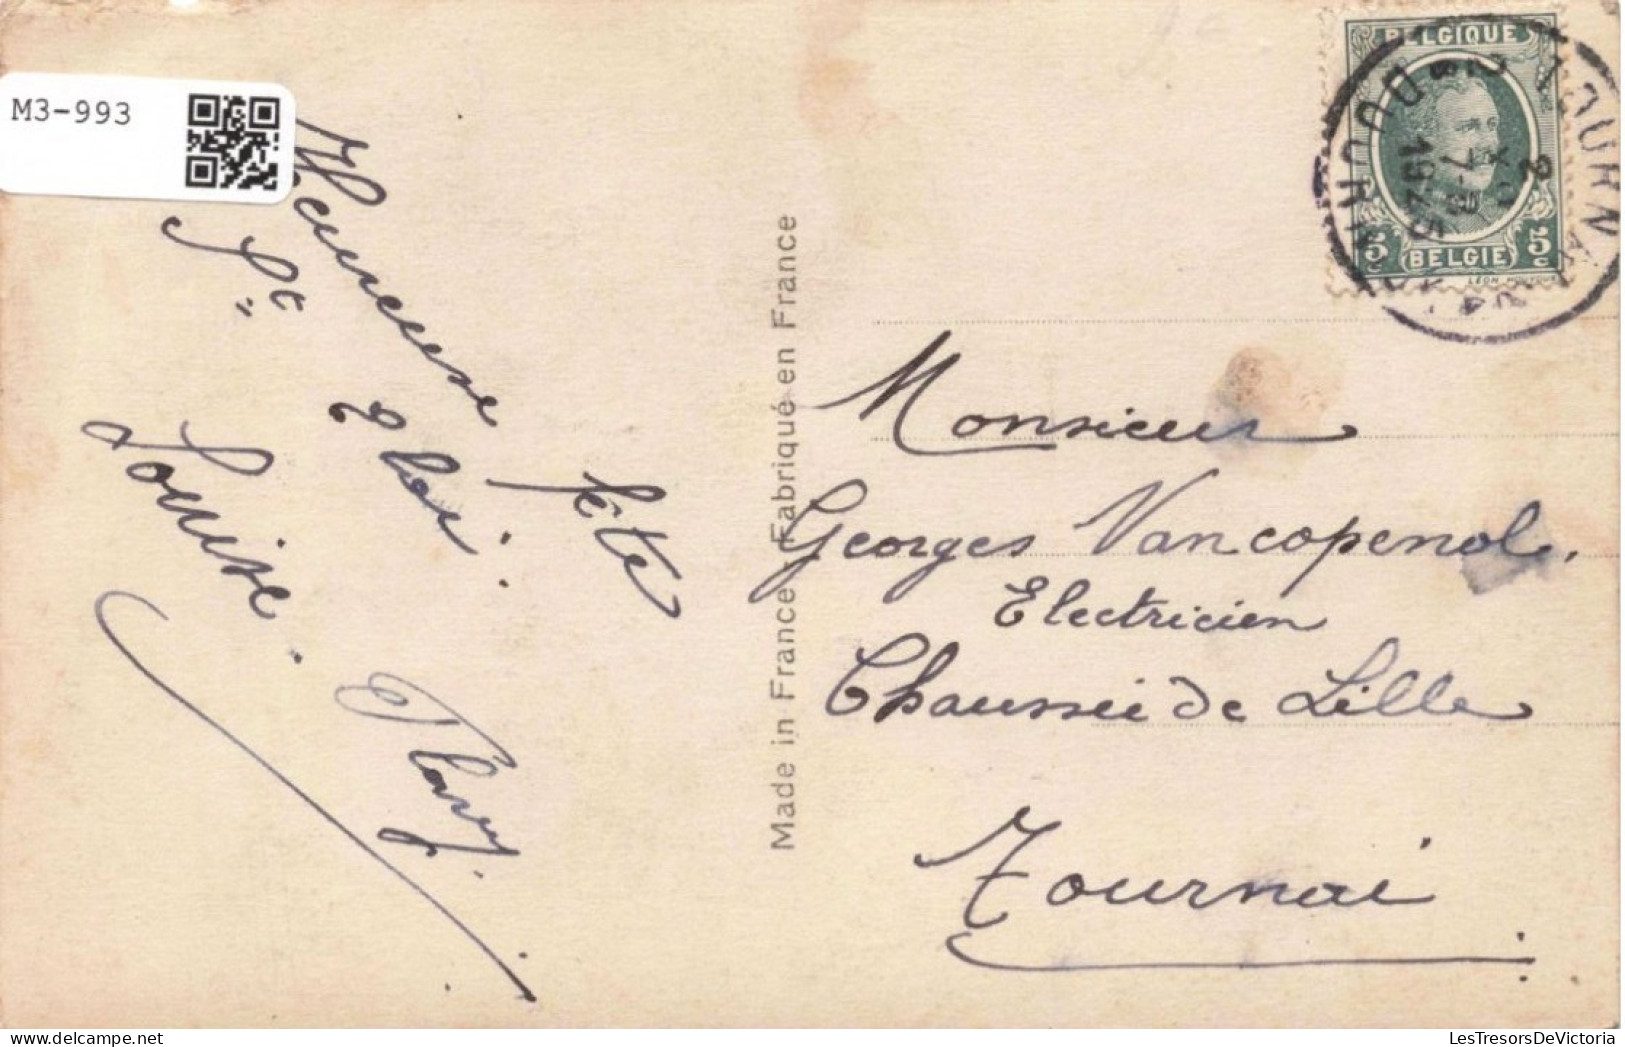 M3-993
Heureuse fête
St Eloi.
Louise
Made in France Fabriqué en France
BELGIQUE
5c BELGIE 5c
TOURNAI
DOORNIK
1925
Monsieur
Georges Vancopenol.
Electricien
Chaussée de Lille
Tournai
LesTresorsDeVictoria